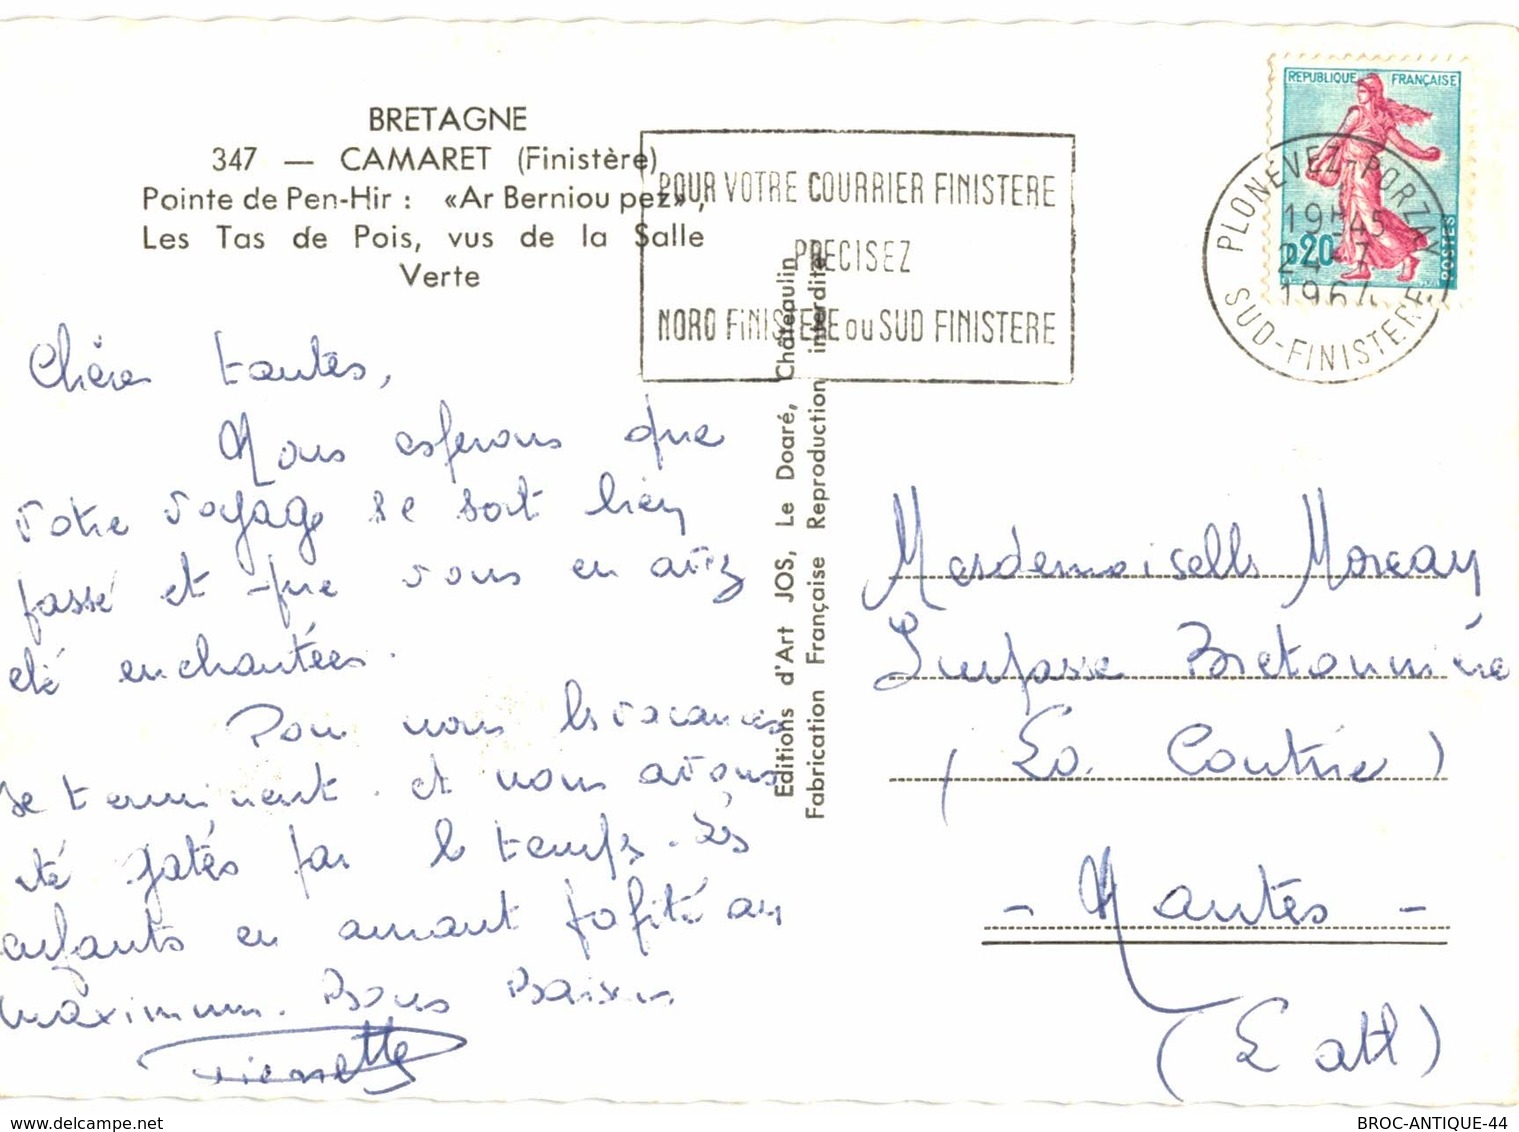 BRETAGNE
347 — CAMARET (Finistère)
Pointe de Pen-Hir : «Ar Berniou pez»,
Les Tas de Pois, vus de la Salle
Verte
POUR VOTRE COURRIER FINISTERE
PRECISEZ
NORD FINISTERE ou SUD FINISTERE
REPUBLIQUE FRANÇAISE
0,20
POSTES
PLONEVEZ-PORZAY
19H45
24-7
1964
SUD-FINISTERE
Chères tantes,
Nous esperons que
votre voyage se soit bien
passé et que vous en avez
été enchantées.
Pour nous les vacances
se terminent. et nous avons
été gatés par le temps. Les
enfants en auront profité au
maximum. Bons Baisers
Pierrette
Editions d'Art JOS, Le Doaré, Châteaulin
Fabrication Française Reproduction interdite
Mesdemoiselles Moreau
Impasse Bretonnière
(La Contrie)
- Nantes -
(L atl)
www.delcampe.net
BROC-ANTIQUE-44